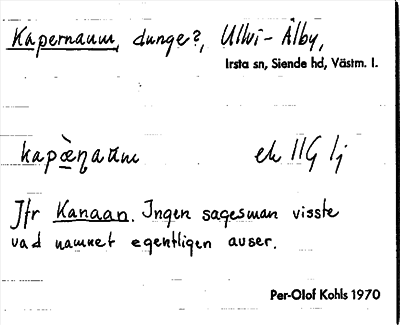 Kapernaum, dunge?, Ullvi-Älby,
Irsta sn, Siende hd, Västm. l.
kapæ̀ɳaūm ek IIG lj
Jfr Kanaan. Ingen sagesman visste
vad namnet egentligen avser.
Per-Olof Kohls 1970